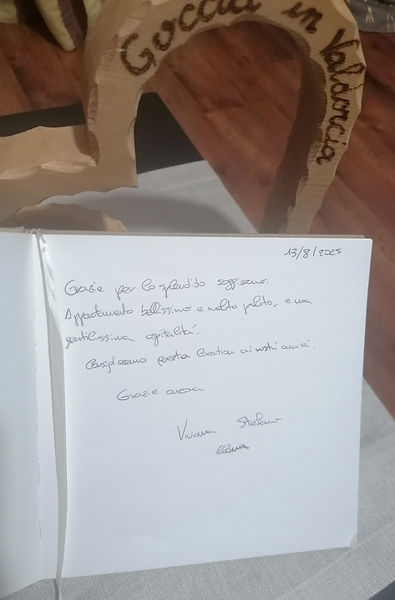 Goccia in Valdorcia
13/8/2025
Grazie per lo splendido soggiorno.
Appartamento bellissimo e molto pulito, e una
gentilissima ospitalità.
Consiglieremo questa location ai nostri amici.
Grazie ancora
Viviana Stefano